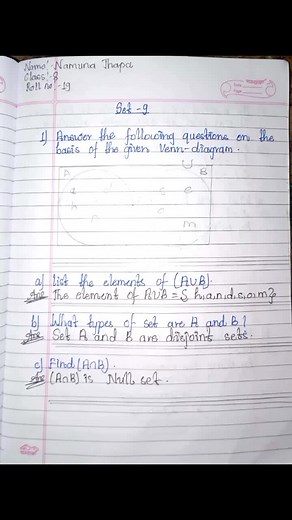 Name:- Namuna Thapa
Class:- 8
Roll no:- 19
Set - 9
1) Answer the following questions on the
basis of the given Venn-diagram.
U
A B
h
m
a) List the elements of (A∪B).
Ans The element of A∪B = { h, a, n, d, s, o, m }
b) What types of set are A and B?
Ans Set A and B are disjoint sets.
c) Find (A∩B).
Ans (A∩B) is Null set.